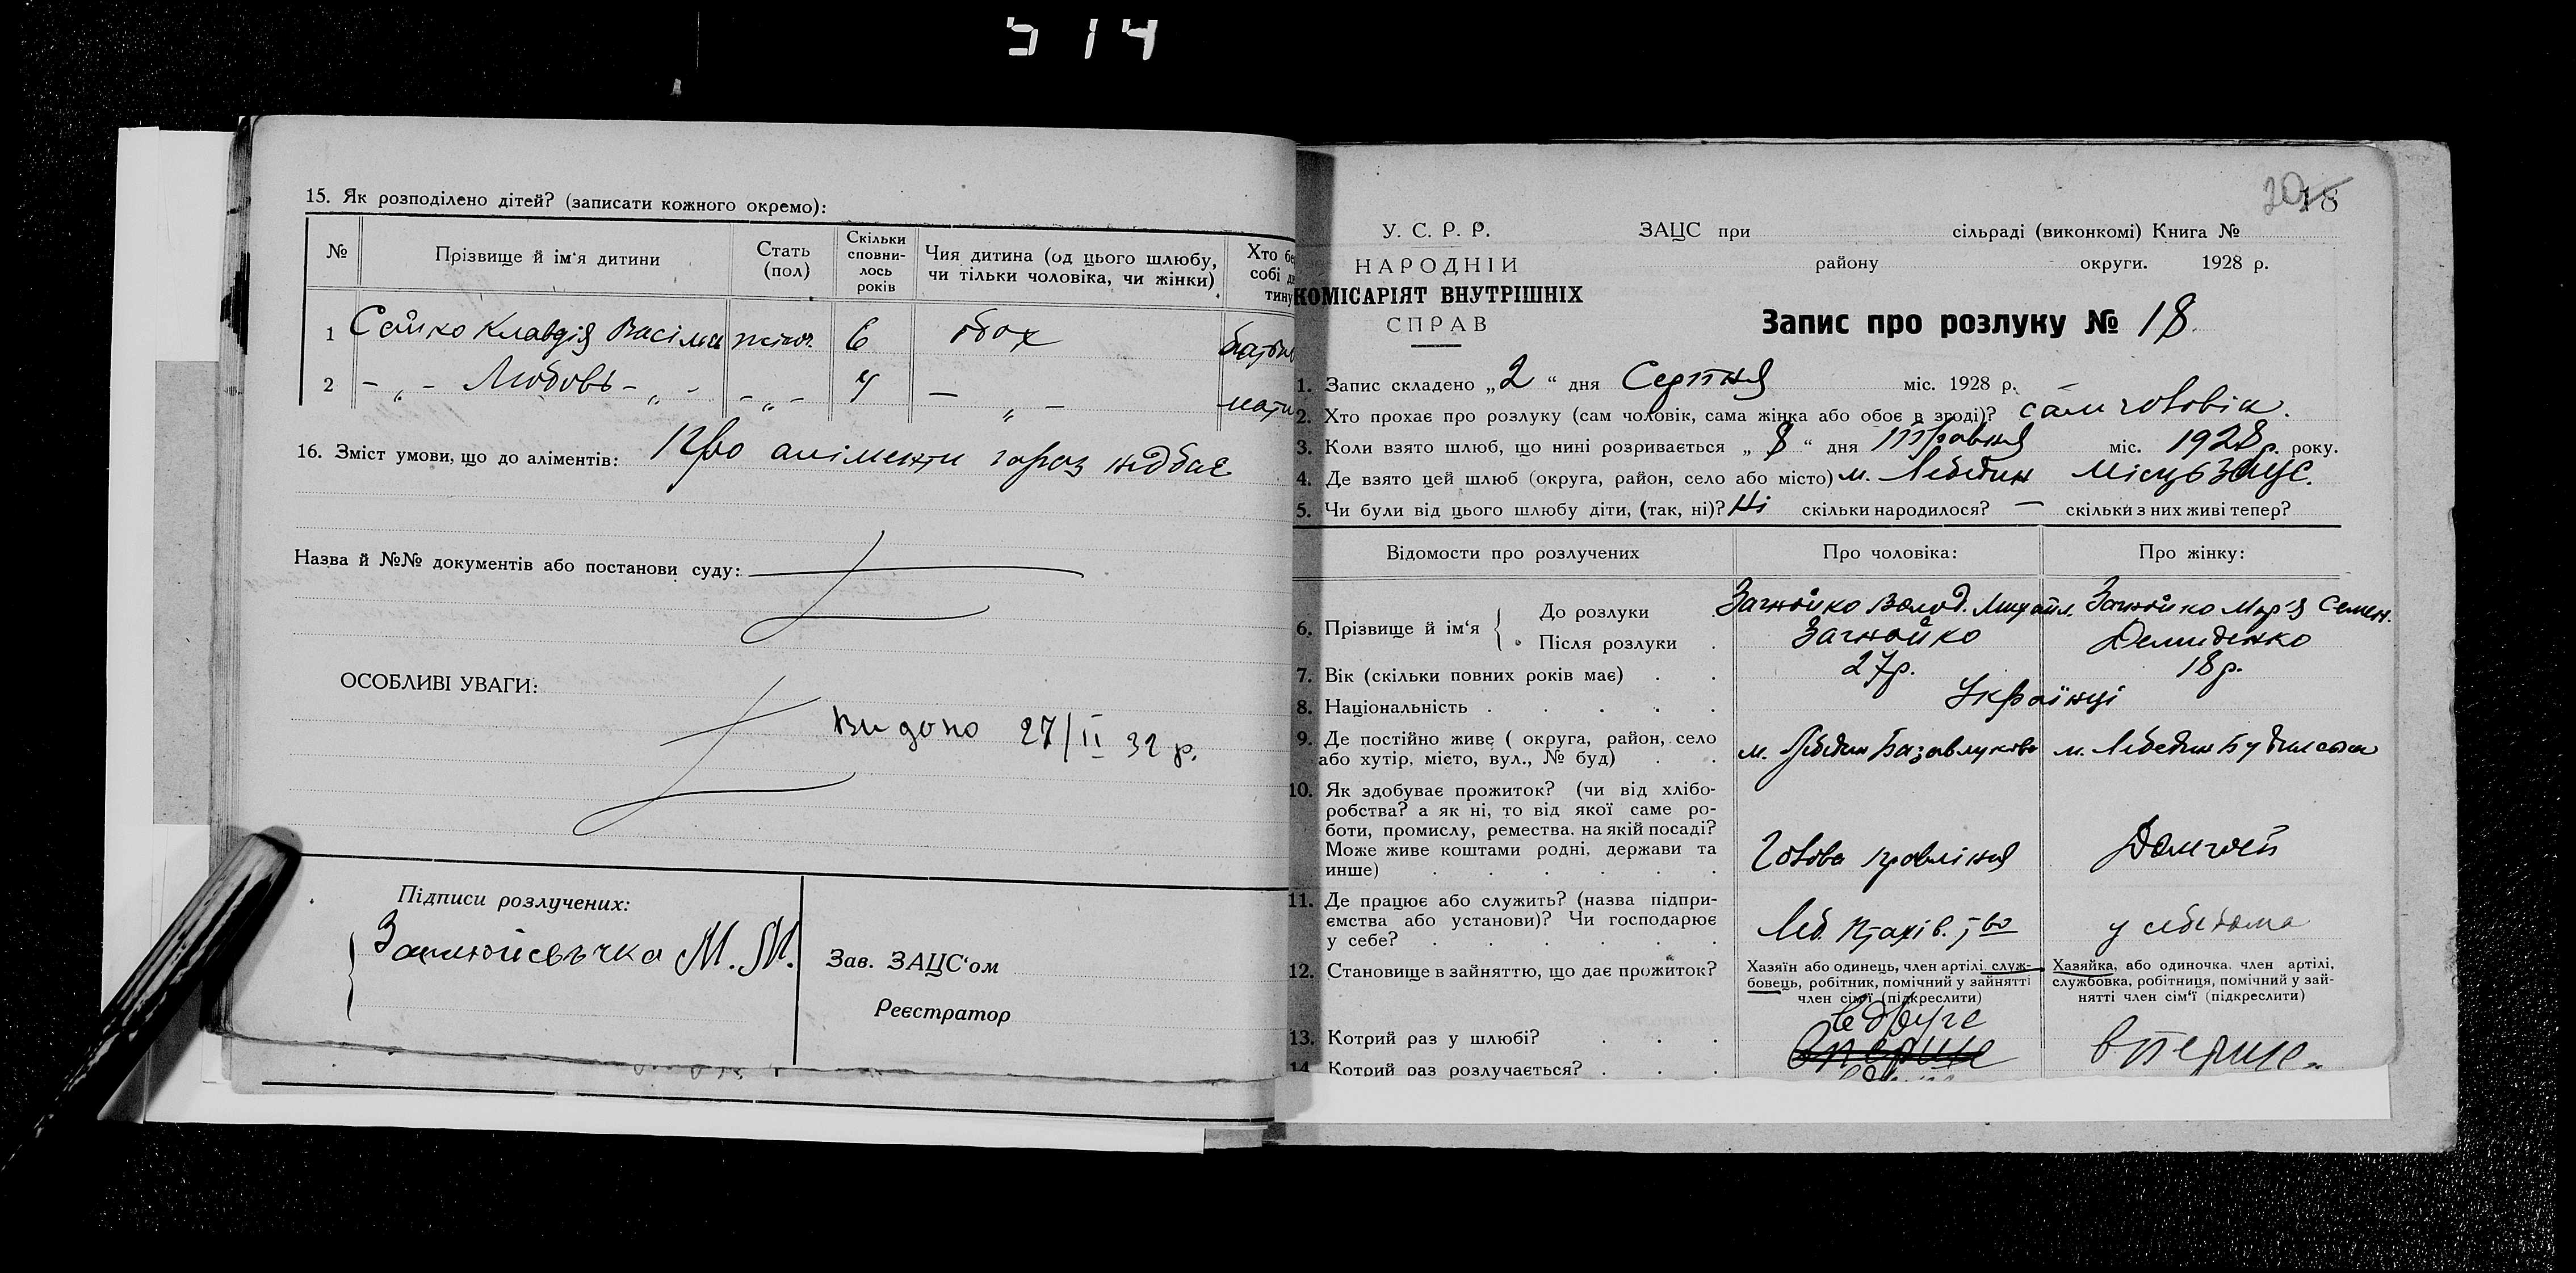 514
15. Як розподілено дітей? (записати кожного окремо):
№ Прізвище й ім'я дитини Стать (пол) Скільки сповнилось років Чия дитина (од цього шлюбу, чи тільки чоловіка, чи жінки) Хто бе собі ди тину
1 Сайко Клавдія жіноч. 6 обох
2 - „ - Любовь - „ - - „ - 4 - „ - мати
16. Зміст умови, що до аліментів: Про аліменти
Назва й №№ документів або постанови суду:
ОСОБЛИВІ УВАГИ:
Видано 27/II 32 р.
Підписи розлучених:
М. М.
Зав. ЗАЦС'ом
Реєстратор
20 18
У. С. Р. Р. ЗАЦС при сільраді (виконкомі) Книга №
НАРОДНІЙ району округи. 1928 р.
КОМІСАРІЯТ ВНУТРІШНІХ
СПРАВ
Запис про розлуку № 18
1. Запис складено „2“ дня Серпня міс. 1928 р.
2. Хто прохає про розлуку (сам чоловік, сама жінка або обоє в згоді)? сам чоловік.
3. Коли взято шлюб, що нині розривається „8“ дня Травня міс. 1928 р. року.
4. Де взято цей шлюб (округа, район, село або місто) м. Лебедин
5. Чи були від цього шлюбу діти, (так, ні)? Ні скільки народилося? — скільки з них живі тепер?
Відомости про розлучених Про чоловіка: Про жінку:
6. Прізвище й ім'я
До розлуки Загнойко Волод. Михайл. Загнойко Мар'я Семен.
Після розлуки Загнойко Демиденко
7. Вік (скільки повних років має) 27р. 18р.
8. Національність Українці
9. Де постійно живе ( округа, район, село
або хутір, місто, вул., № буд) м. Лебедин м. Лебедин
10. Як здобуває прожиток? (чи від хлібо-
робства? а як ні, то від якої саме ро-
боти, промислу, ремества. на якій посаді?
Може живе коштами родні, держави та
инше) Голова правління
11. Де працює або служить? (назва підпри-
ємства або установи)? Чи господарює
у себе? Леб. у себе дома
12. Становище в зайняттю, що дає прожиток? Хазяїн або одинець, член артілі, служ-
бовець, робітник, помічний у зайнятті
член сім'ї (підкреслити)
Хазяйка, або одиночка, член артілі,
службовка, робітниця, помічний у зай-
нятті член сім'ї (підкреслити)
вдруге
13. Котрий раз у шлюбі? вперше вперше
14. Котрий раз розлучається?